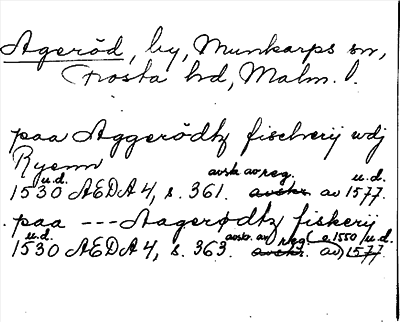 Ageröd, by, Munkarps sn,
Frosta hd, Malm. l.
paa Aggerödtz fischerij wdj
Ryenn
u.d. avskr. av reg. u.d.
1530 AEDA 4, s. 361. avskr. av 1577.
paa --- Aagerødtz fiskerij
u.d. avskr. av regg (c 1550 / u.d.
1530 AEDA 4, s. 363. avskr. av) 1577.